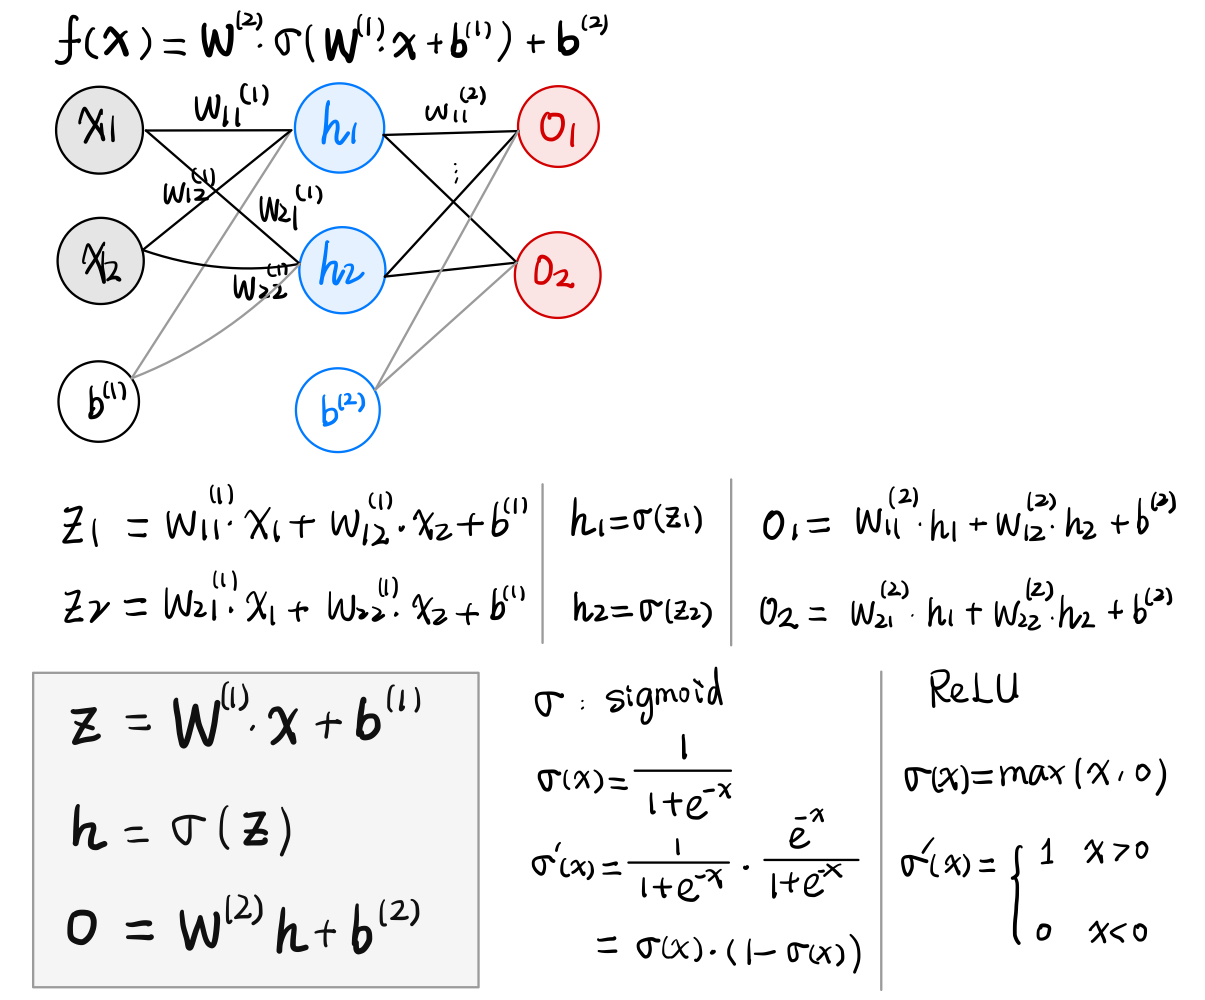 f(x) = W⁽²⁾· σ(W⁽¹⁾· x + b⁽¹⁾) + b⁽²⁾
x1 w11⁽¹⁾ h1 w11⁽²⁾ o1
w12⁽¹⁾ ⋮
w21⁽¹⁾
x2 h2 o2
w22⁽¹⁾
b⁽¹⁾ b⁽²⁾
z1 = w11⁽¹⁾· x1 + w12⁽¹⁾· x2 + b⁽¹⁾
z2 = w21⁽¹⁾· x1 + w22⁽¹⁾· x2 + b⁽¹⁾
h1 = σ(z1)
h2 = σ(z2)
o1 = w11⁽²⁾· h1 + w12⁽²⁾· h2 + b⁽²⁾
o2 = w21⁽²⁾· h1 + w22⁽²⁾· h2 + b⁽²⁾
z = W⁽¹⁾· x + b⁽¹⁾
h = σ(z)
o = W⁽²⁾ h + b⁽²⁾
σ : sigmoid
σ(x) = 1 / (1+e^-x)
σ'(x) = 1 / (1+e^-x) · e^-x / (1+e^-x)
= σ(x)·(1 − σ(x))
ReLU
σ(x) = max(x, 0)
σ'(x) = { 1 x>0
0 x<0